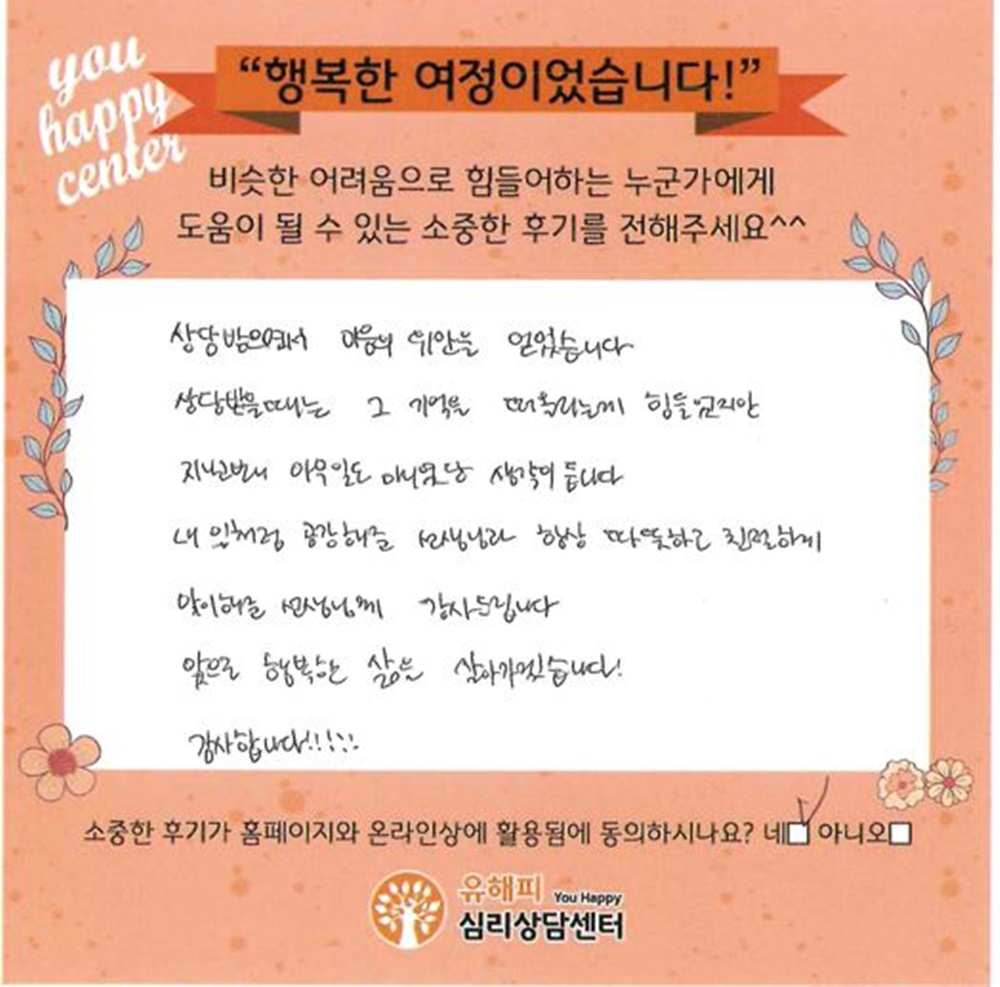 you
happy
center
“행복한 여정이었습니다!”
비슷한 어려움으로 힘들어하는 누군가에게
도움이 될 수 있는 소중한 후기를 전해주세요^^
상담받으면서 마음의 위안을 얻었습니다
상담받을때는 그 기억을 떠올리는게 힘들었지만
지나고보니 아무일도 아니었단 생각이 듭니다
내 일처럼 공감해준 선생님과 항상 따뜻하고 친절하게
맞이해준 선생님께 감사드립니다
앞으로 행복한 삶을 살아가겠습니다!
감사합니다!!!!!
소중한 후기가 홈페이지와 온라인상에 활용됨에 동의하시나요? 네 아니오
유해피 You Happy
심리상담센터